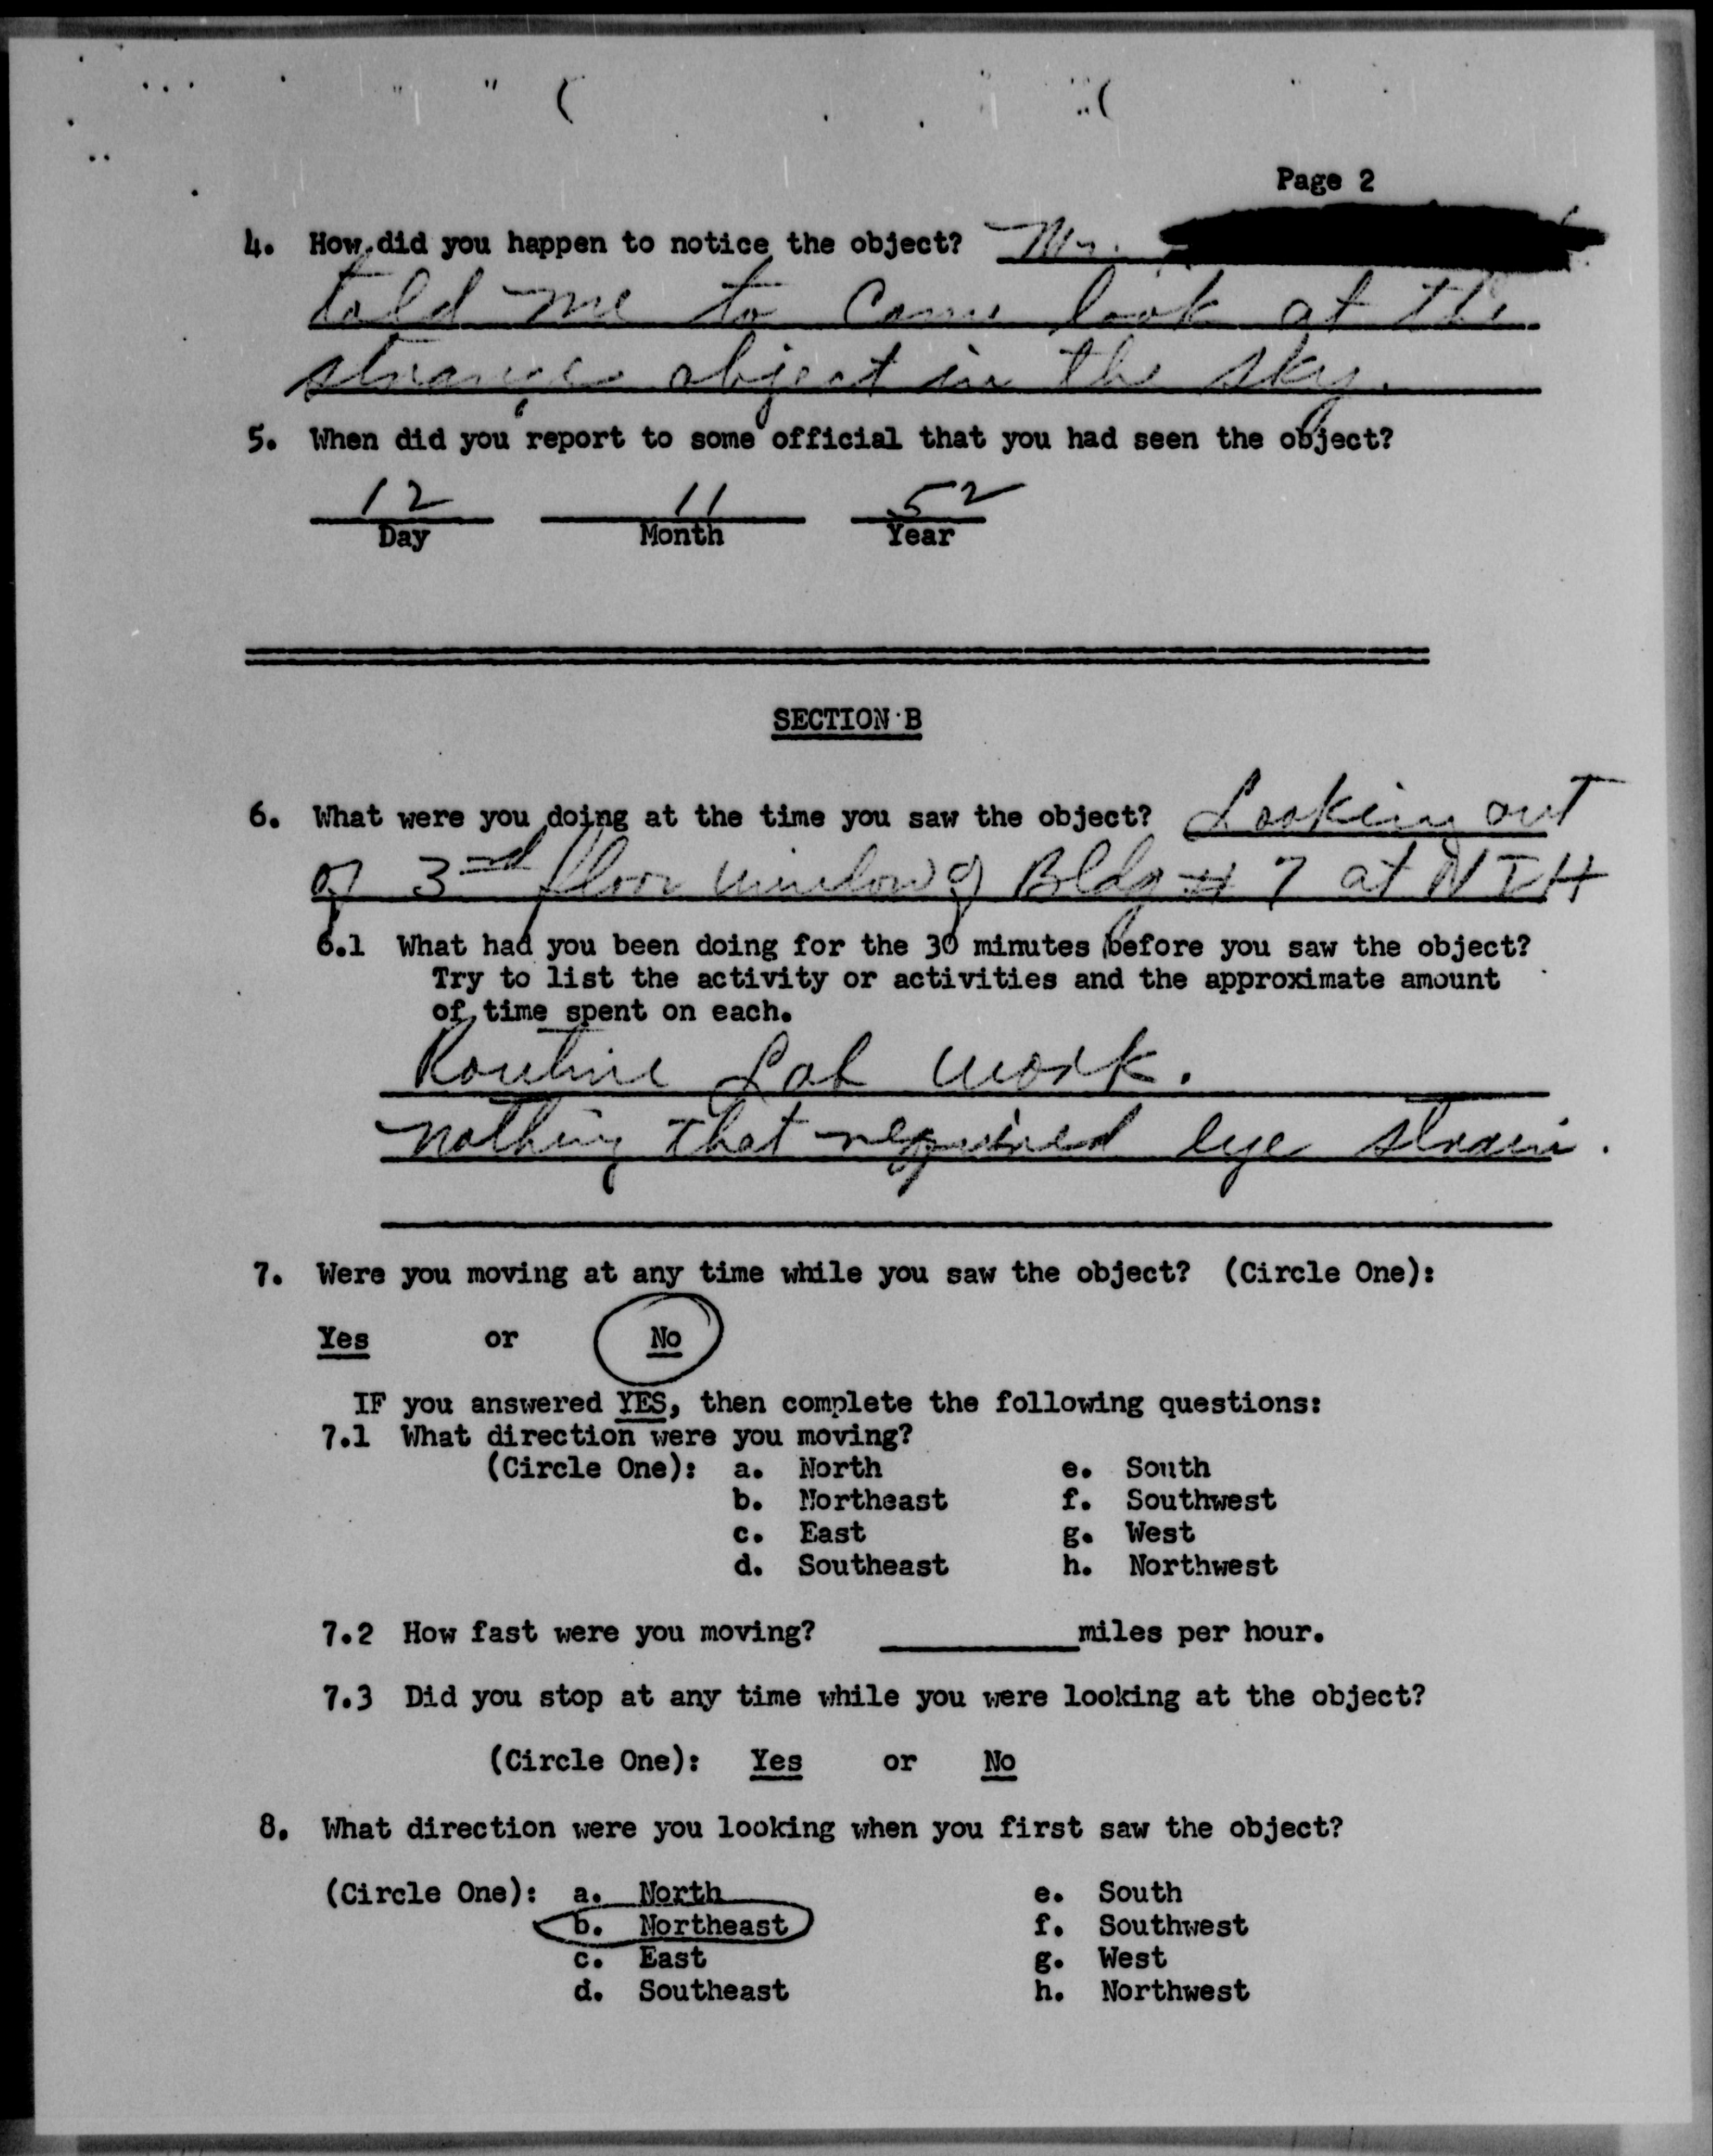 Page 2
4. How did you happen to notice the object? Mr.
told me to come look at the
strange object in the sky.
5. When did you report to some official that you had seen the object?
12 11 52
Day Month Year
SECTION B
6. What were you doing at the time you saw the object? Looking out
of 3rd floor window of Bldg # 7 at NIH
6.1 What had you been doing for the 30 minutes before you saw the object?
Try to list the activity or activities and the approximate amount
of time spent on each.
Routine Lab work.
nothing that required eye strain.
7. Were you moving at any time while you saw the object? (Circle One):
Yes or No
IF you answered YES, then complete the following questions:
7.1 What direction were you moving?
(Circle One): a. North e. South
b. Northeast f. Southwest
c. East g. West
d. Southeast h. Northwest
7.2 How fast were you moving? miles per hour.
7.3 Did you stop at any time while you were looking at the object?
(Circle One): Yes or No
8. What direction were you looking when you first saw the object?
(Circle One): a. North e. South
b. Northeast f. Southwest
c. East g. West
d. Southeast h. Northwest